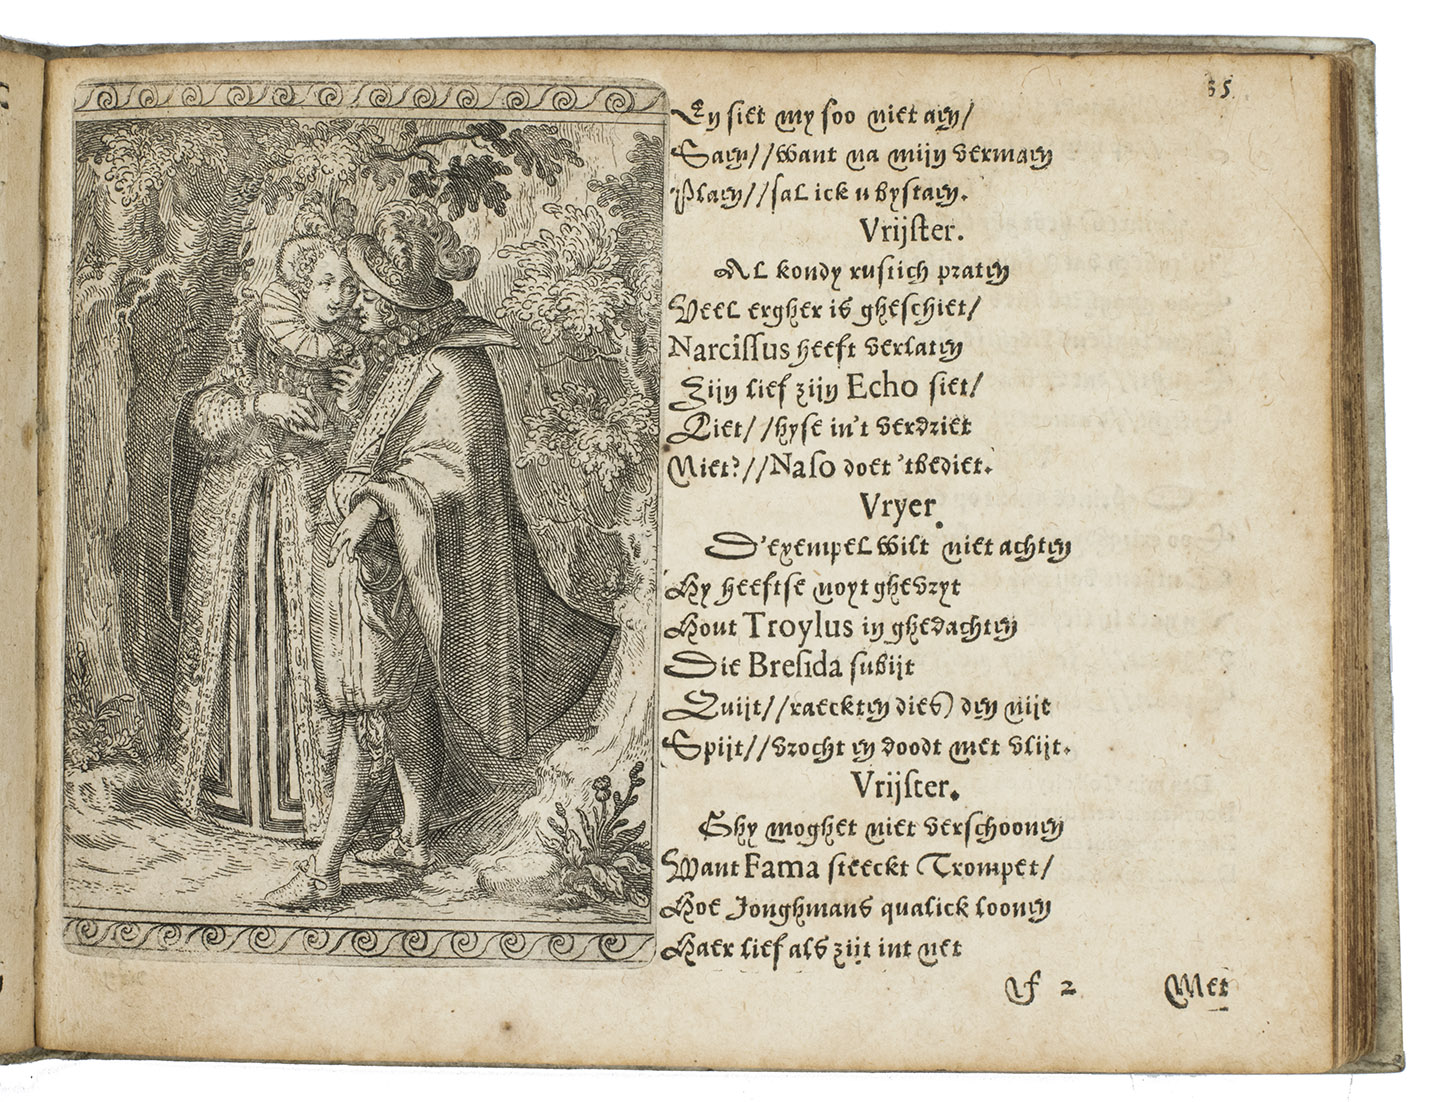 35
Ey siet my soo niet aen/
Saen//want na mijn vermaen
Plaen//sal ick u bystaen.
Vrijster.
Al kondy rustich praten
Veel ergher is gheschiet/
Narcissus heeft verlaten
Zijn lief zijn Echo siet/
Liet//hyse in't verdriet
Niet?//Naso doet 'tbediet.
Vryer.
D'exempel wilt niet achten
Hy heeftse noyt ghevryt
Hout Troylus in ghedachten
Die Bresida subijt
Quijt//raeckten dies) den nijt
Spijt//vrocht en doodt met vlijt.
Vrijster.
Ghy moghet niet verschoonen
Want Fama steeckt Trompet/
Hoe Jonghmans qualick loonen
Haer lief als zijt int net
F 2 Met